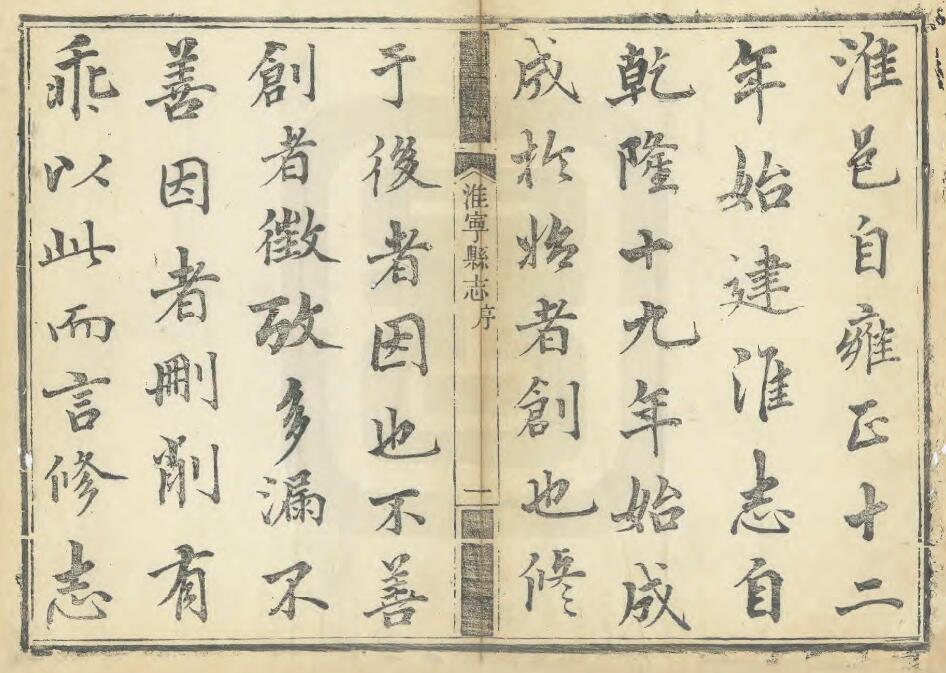 淮邑自雍正十二
年始建淮志自
乾隆十九年始成
成於始者創也修
淮寧縣志 序 二
于後者因也不善
創者徵攷多漏不
善因者刪削有
乖以此而言修志